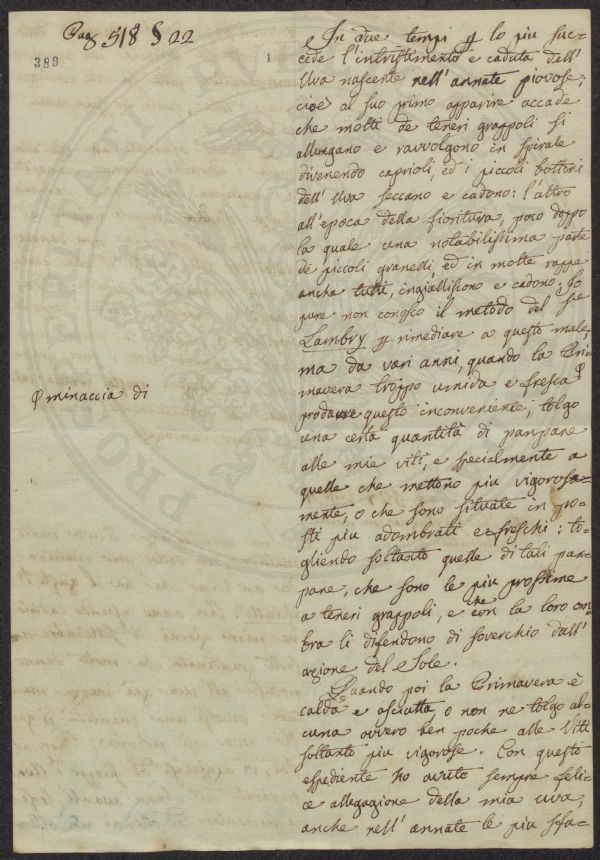 Pag 518 § 22
389
1
In due tempi p lo piu suc=
cede l'intristimento e caduta dell'
Uva nascente nell'annate piovose;
cioè al suo primo apparire accade
che molti de teneri grappoli si
allungano e ravvolgono in spirale
divenendo caprioli, ed i piccoli bottoni
dell'Uva seccano e cadono: l'altro
all'epoca della fioritura, poco doppo
la quale una notabilissima parte
de piccoli granelli, ed in molte rappe
anche tutti, ingialliscono e cadono. Io
pure non conosco il metodo del Sie
Lambry p rimediare a questo male,
ma da vari anni, quando la Pri=
mavera troppo umida e fresca
produrre questo inconveniente, tolgo
minaccia di
una certa quantità di panpane
alle mie viti, e specialmente a
quelle che mettono piu vigorosa=
mente, o che sono situate in po=
sti piu adombrati e freschi: to=
gliendo soltanto quelle di tali pan=
pane, che sono le piu prossime
a teneri grappoli, e che con la loro om=
bra li difendono di soverchio dall'
azione del Sole.
Quando poi la Primavera è
calda e asciutta, o non ne tolgo al=
cuna ovvero ben poche alle Viti
soltanto piu vigorose. Con questo
espediente ho avuto sempre feli=
ce allegagione della mia uva,
anche nell'annate le piu sfa=